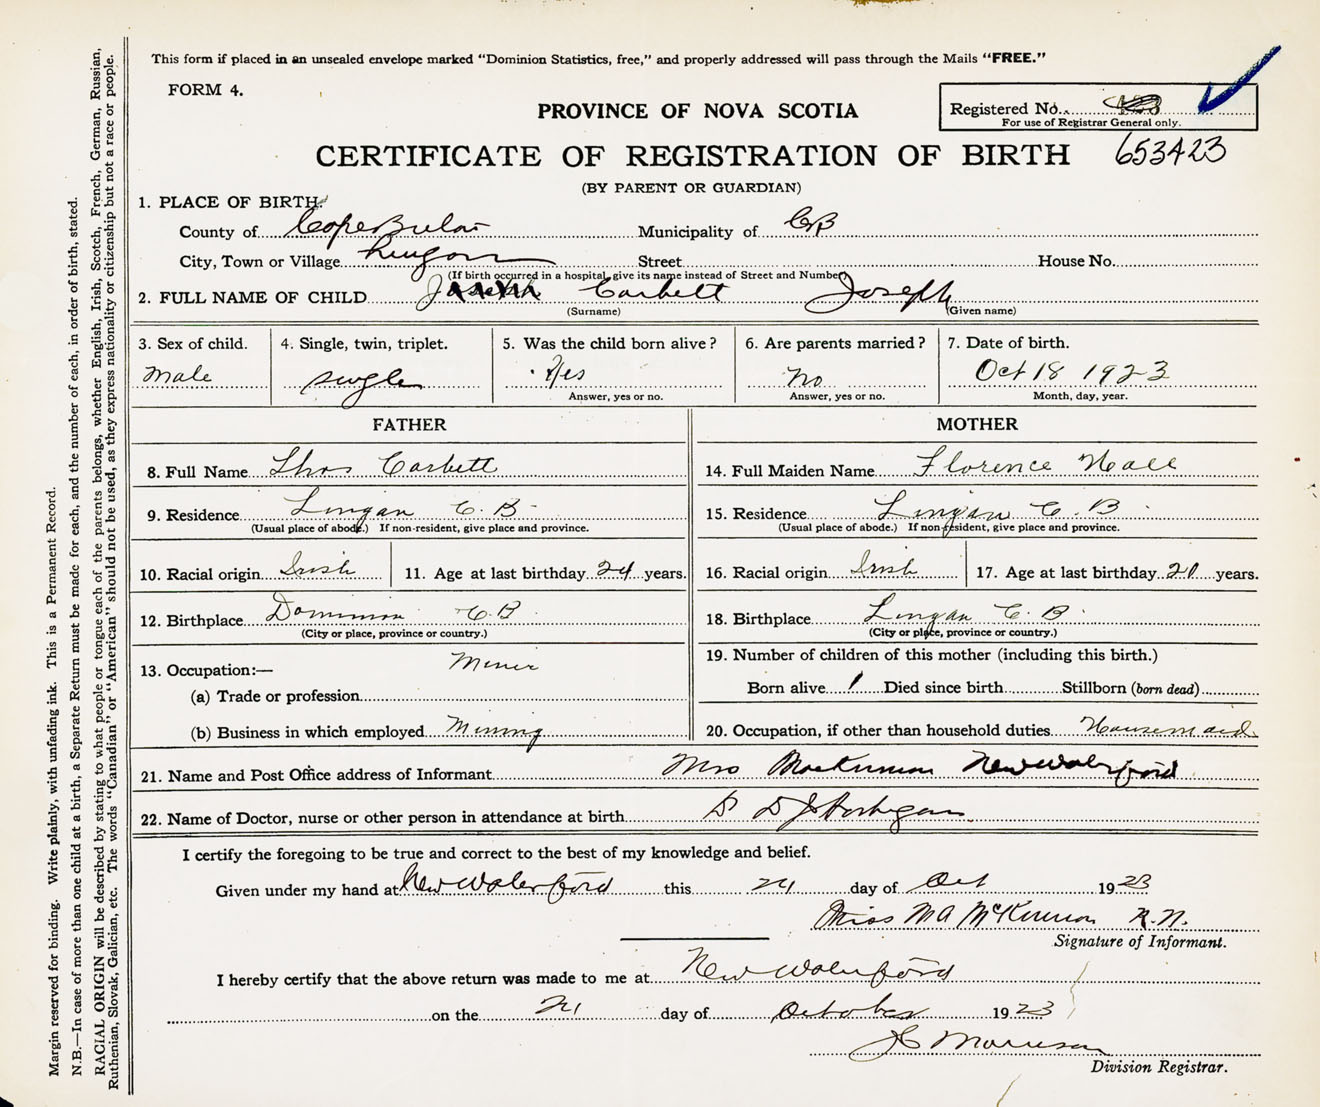 This form if placed in an unsealed envelope marked "Dominion Statistics, free," and properly addressed will pass through the Mails "FREE."
FORM 4.
PROVINCE OF NOVA SCOTIA
Registered No.
For use of Registrar General only.
CERTIFICATE OF REGISTRATION OF BIRTH 653423
(BY PARENT OR GUARDIAN)
1. PLACE OF BIRTH
County of Cape Breton Municipality of CB
City, Town or Village Lingan Street House No.
(If birth occurred in a hospital, give its name instead of Street and Number)
2. FULL NAME OF CHILD Corbett Joseph
(Surname) (Given name)
3. Sex of child. 4. Single, twin, triplet. 5. Was the child born alive? 6. Are parents married? 7. Date of birth.
Male single Yes No Oct 18 1923
Answer, yes or no. Answer, yes or no. Month, day, year.
FATHER MOTHER
8. Full Name Thos Corbett 14. Full Maiden Name Florence
9. Residence Lingan C.B. 15. Residence Lingan C B
(Usual place of abode.) If non-resident, give place and province. (Usual place of abode.) If non-resident, give place and province.
10. Racial origin Irish 11. Age at last birthday 24 years. 16. Racial origin Irish 17. Age at last birthday years.
12. Birthplace Dominion C.B 18. Birthplace Lingan C. B.
(City or place, province or country.) (City or place, province or country.)
13. Occupation:— Miner 19. Number of children of this mother (including this birth.)
(a) Trade or profession Born alive 1 Died since birth Stillborn (born dead)
(b) Business in which employed Mining 20. Occupation, if other than household duties Housemaid
21. Name and Post Office address of Informant New Waterford
22. Name of Doctor, nurse or other person in attendance at birth
I certify the foregoing to be true and correct to the best of my knowledge and belief.
Given under my hand at New Waterford this day of Oct 1923
Miss M A McKinnon R.N.
Signature of Informant.
I hereby certify that the above return was made to me at New Waterford
on the day of October 1923
Morrison
Division Registrar.
Margin reserved for binding. Write plainly, with unfading ink. This is a Permanent Record.
N.B.—In case of more than one child at a birth, a Separate Return must be made for each, and the number of each, in order of birth, stated.
RACIAL ORIGIN will be described by stating to what people or tongue each of the parents belongs, whether English, Irish, Scotch, French, German, Russian,
Ruthenian, Slovak, Galician, etc. The words "Canadian" or "American" should not be used, as they express nationality or citizenship but not a race or people.